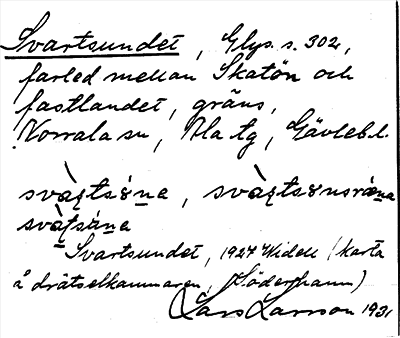 Svartsundet, Glys. s. 302,
farled mellan Skatön och
fastlandet, gräns,
Norrala sn, Ala tg, Gävleb.l.
svàʈtsɞna, svàʈtsɞnsræna
svàtsàna
Svartsundet, 1927 Widell (karta
å drätselkammaren, Söderhamn)
Lars Larsson 1931